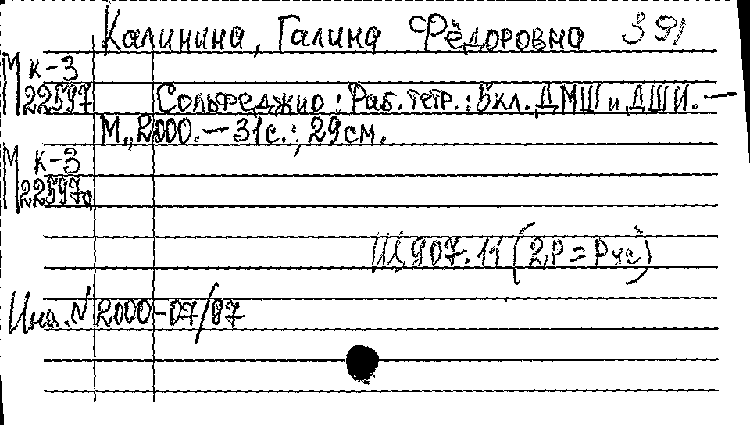 Калинина, Галина Фёдоровна 391
М К-3
22597
Сольфеджио: Раб. тетр.: 5 кл. ДМШ и ДШИ. —
М., 2000. — 31 с.; 29 см.
М К-3
22597а
Щ907.11 (2Р=Рус)
Инв. N 2000-07/87